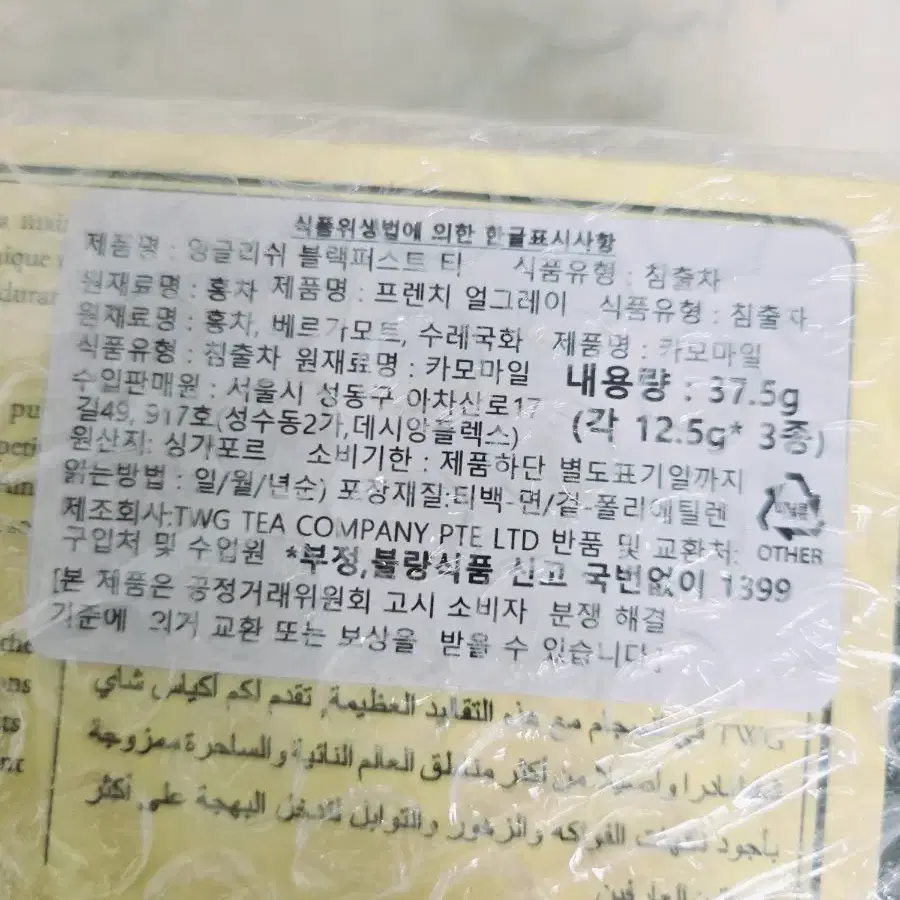 식품위생법에 의한 한글표시사항
제품명 : 잉글리쉬 블랙퍼스트 티 식품유형 : 침출차
원재료명 : 홍차 제품명 : 프렌치 얼그레이 식품유형 : 침출차
원재료명 : 홍차, 베르가모트, 수레국화 제품명 : 카모마일
식품유형 : 침출차 원재료명 : 카모마일
내용량 : 37.5g
수입판매원 : 서울시 성동구 아차산로17
길49, 917호(성수동2가,데시앙플렉스)
(각 12.5g* 3종)
원산지: 싱가포르 소비기한 : 제품하단 별도표기일까지
읽는방법 : 일/월/년순) 포장재질:티백-면/겉-폴리에틸렌
제조회사:TWG TEA COMPANY PTE LTD 반품 및 교환처:
OTHER
구입처 및 수입원 *부정,불량식품 신고 국번없이 1399
[본 제품은 공정거래위원회 고시 소비자 분쟁 해결
기준에 의거 교환 또는 보상을 받을 수 있습니다]
TWG في مع هذه التقاليد العظيمة, تقدم لكم أكياس شاي
من أكثر العالم النائية والساحرة ممزوجة
بأجود نكهات الفواكه والزهور والتوابل البهجة على أكثر
العارفين